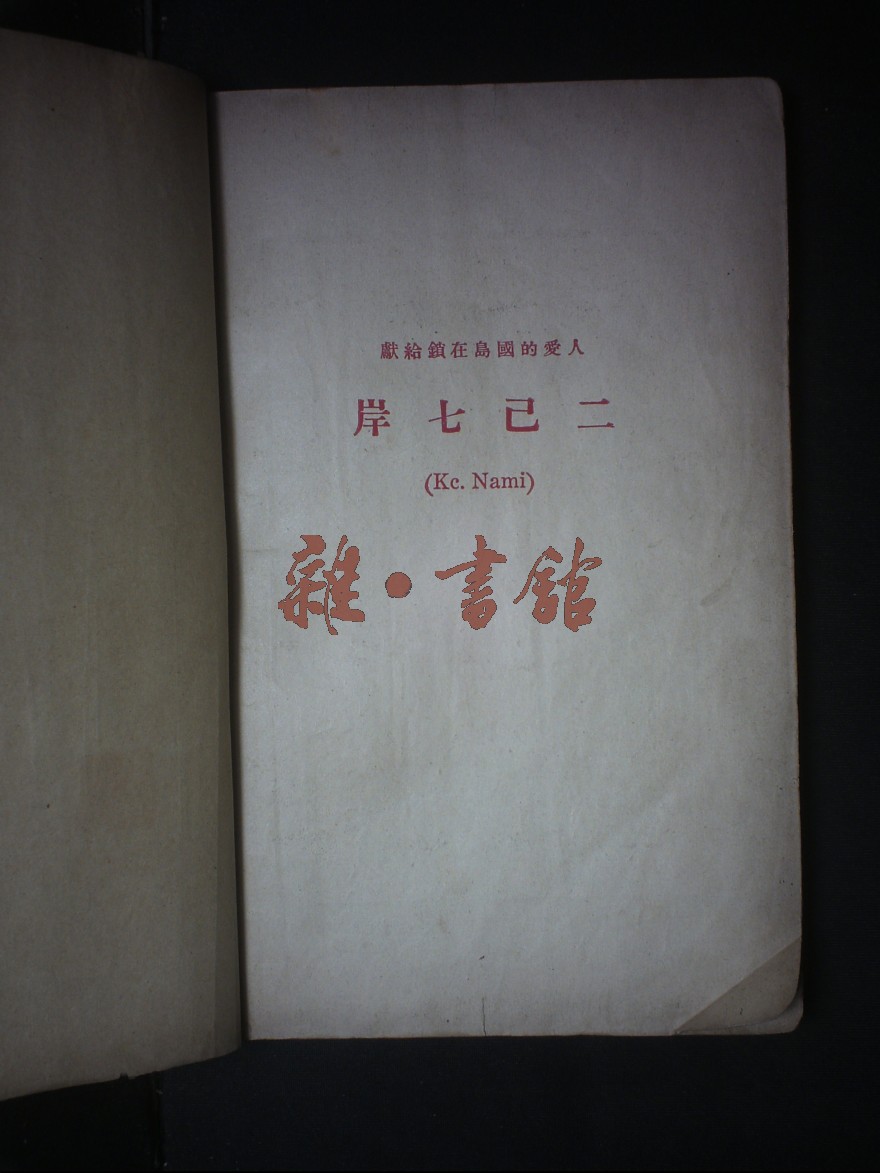 獻給鎖在島國的愛人
岸七己二
(Kc. Nami)
雜·書館